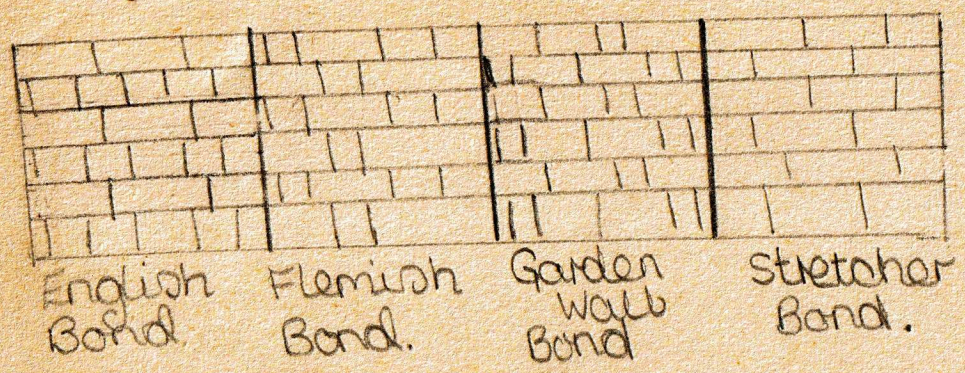 English
Bond.
Flemish
Bond.
Garden
Wall
Bond
Stretcher
Bond.